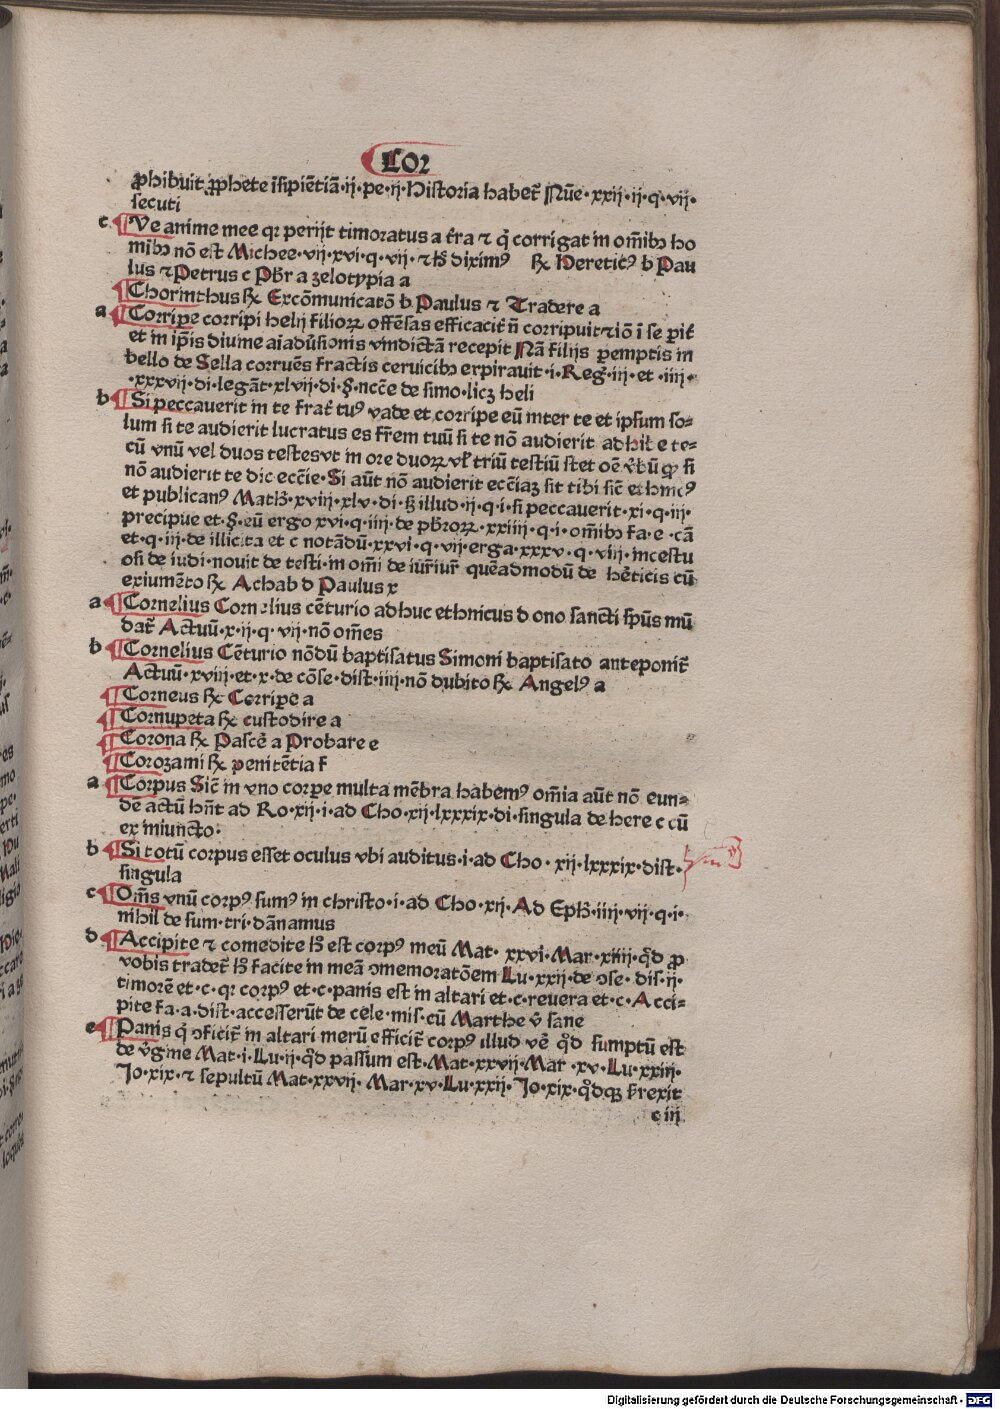 Cor
ꝓhibuit ꝓphete īsipiētiā·ij·pe·ij·Historia habet᷑ Nūe·xxij·ij·q·vij·
secuti
c Ve anime mee qꝛ perijt timoratus a t̄ra ⁊ q̇ corrigat in om̄ibꝫ ho
mībꝫ nō est Michee·vij·xvi·q·vij·⁊ hͦ diximꝰ ℞ Hereticꝰ b Pau
lus ⁊ Petrus c Pbr̄ a zelotypia a
Chorinthus ℞ Excōmunicatō b Paulus ⁊ Tradere a
a Corripe corripi helij filioꝝ offēsas efficacit᷑ n̄ corripuit ⁊ iō ī se pit᷑
et in ip̄is diuine aīaduͤsionis vindictā recepit Nā filijs ꝑemptis in
bello de Sella corruēs fractis ceruicibꝫ expirauit·i·Reg·iij·et·iiij·
·xxxvij·di·legāt·xlvij·di·§·nccē de simo·licꝫ heli
b Si peccauerit in te frat᷑ tuꝰ vade et corripe eū inter te et ipsum so-
lum si te audierit lucratus es fr̄em tuū si te nō audierit adhibe te-
cū vnū vel duos testes vt in ore duoꝝ vl̓ triū testiū stet oē v̓bū ꝙ si
nō audierit te dic ecc̄ie·Si aūt nō audierit ecc̄iaꝫ sit tibi sic̄ ethnicꝰ
et publicanꝰ Math·xviij·xlv·di·sꝫ illud·ij·q·i·si peccauerit·xi·q·iij·
precipue et·§·eū ergo xvi·q·iiij·de pbr̄oꝝ·xxiiij·q·i·om̄ibꝫ fa·e·cā
et·q·iij·de illicita et c notādū·xxvi·q·vij·erga·xxxv·q·viij·incestu
osi de iudi·nouit de testi·in om̄i de iur̄iur̄ quēadmodū de hēticis cū
eximēto ℞ Achab d Paulus x
a Cornelius Cornelius cēturio adhuc ethnicus dono sancti sp̄us mū
dat᷑ Actuū·x·ij·q·vij·nō om̄es
b Cornelius Cēturio nōdū baptisatus Simoni baptisato anteponit᷑
Actuū·xviij·et·x·de cōse·dist·iiij·nō dubito ℞ Angelꝰ a
Corneus ℞ Corripe a
Cornupeta ℞ custodire a
Corona ℞ Pascē a Probare e
Corozami ℞ penitētia f
a Corpus Sic̄ in vno corpe multa mēbra habemꝰ om̄ia aūt nō eun-
dē actū hn̄t ad Ro·xij·i·ad Cho·xij·lxxxix·di·singula de here c cū
ex iniuncto:
b Si totū corpus esset oculus vbi auditus·i·ad Cho·xij·lxxxix·dist·
singula
c Om̄s vnū corpꝰ sumꝰ in christo·i·ad Cho·xij·Ad Eph·iiij·vij·q·i·
nihil de sum·tri·dānamus
d Accipite ⁊ comedite hͦ est corpꝰ meū Mat·xxvi·Mar·xiiij·qͦd ꝓ
vobis tradet᷑ hͦ facite in meā ꝯmemoratōem Lu·xxij·de ꝯse·dis·ij·
timorē et·c·qꝛ corpꝰ et·c·panis est in altari et·c·reuera et·c·Acci-
pite fa·a·dist·accesserūt de cēle·mis·cū Marthe v̓ sane
e Panis q̇ ꝯficit᷑ in altari merū efficit᷑ corpꝰ illud vē qͦd sumptū est
de v̓gine Mat·i·Lu·ij·qͦd passum est·Mat·xxvij·Mar·xv·Lu·xxiij·
Jo·xix·⁊ sepultū Mat·xxvij·Mar·xv·Lu·xxij·Jo·xix·qͦdqꝫ s̄rexit
c iij
Digitalisierung gefördert durch die Deutsche Forschungsgemeinschaft · DFG